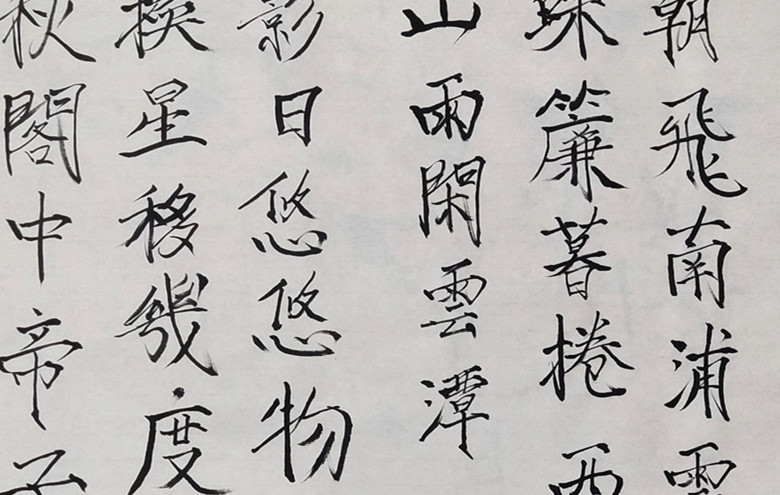 朝飛南浦雲
珠簾暮捲西
山雨閑雲潭
影日悠悠物
換星移幾度
秋閣中帝子